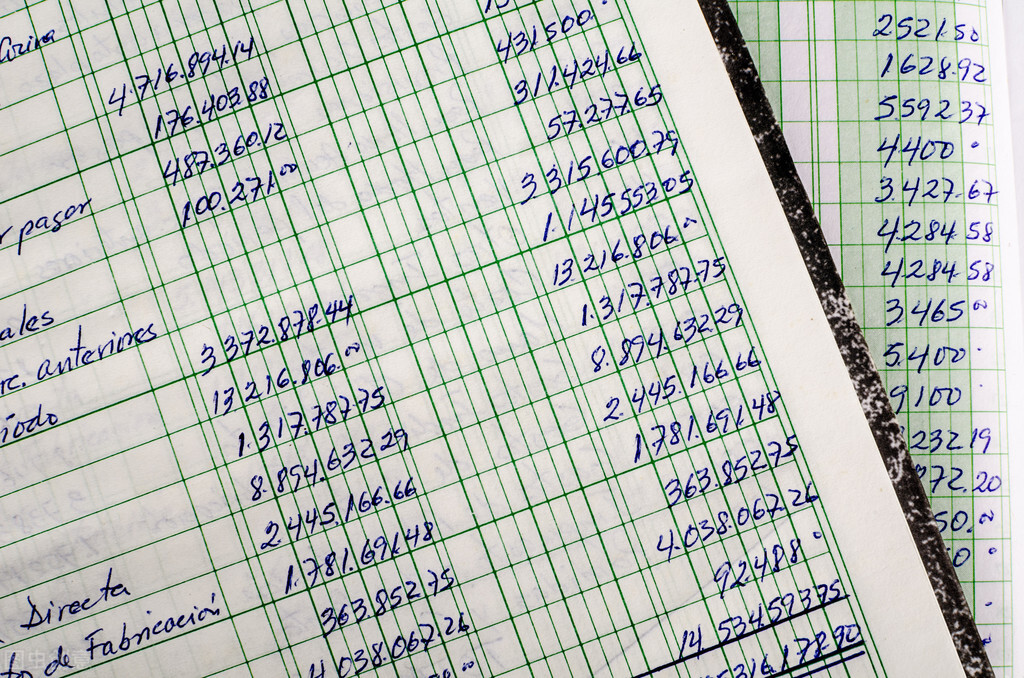 4.716.894.14 431.500.00
176.403.88 311.424.66
487.360.12 57.277.65
pagar 100.271.00 3 315 600.79
1.145.553.05
ales 13 216.806.00
anteriores 3 372.878.44 1.317.787.75
iodo 13 216.806.00 8.894.632.29
1.317.787.75 2.445.166.66
8.894.632.29 1 781.691.48
2.445.166.66 363.852.75
1.781.691.48 4.038.067.26
Directa 363.852.75 92.488
de Fabricación 4 038.067.26 14.534.593.75
5316.178.90
2521.50
1628.92
5592 37
4400
3.427.67
4.284.58
4284.58
3.465.00
5.400
9100
232 19
72.20
50.00
0